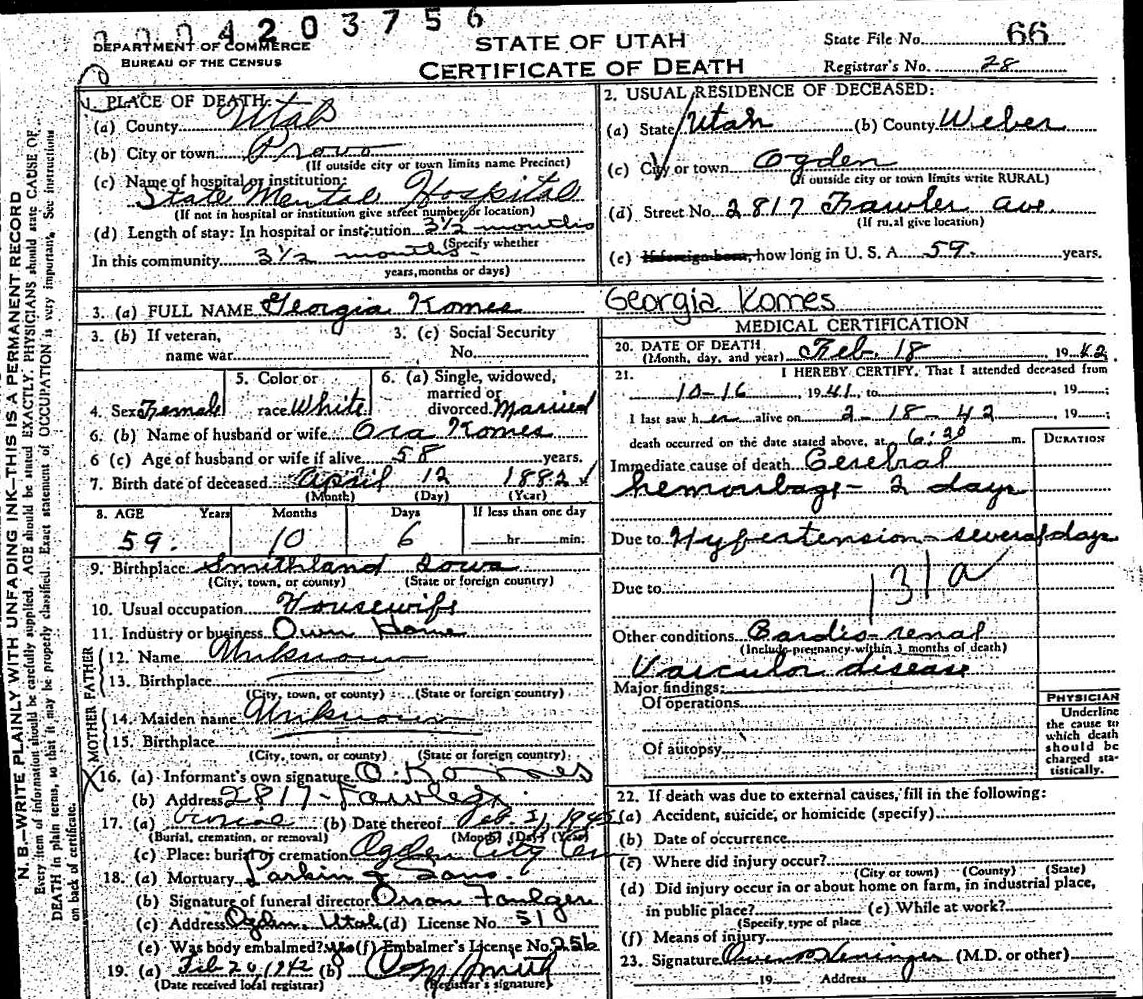 0004203756
DEPARTMENT OF COMMERCE
BUREAU OF THE CENSUS
STATE OF UTAH
CERTIFICATE OF DEATH
State File No. 66
Registrar's No. 28
N. B.—WRITE PLAINLY WITH UNFADING INK—THIS IS A PERMANENT RECORD
Every item of information should be carefully supplied. AGE should be stated EXACTLY. PHYSICIANS should state CAUSE OF
DEATH in plain terms, so that it may be properly classified. Exact statement of OCCUPATION is very important. See instructions
on back of certificate.
1. PLACE OF DEATH:
(a) County Utah
(b) City or town Provo
(If outside city or town limits name Precinct)
(c) Name of hospital or institution:
State Mental Hospital
(If not in hospital or institution give street number or location)
(d) Length of stay: In hospital or institution 3½ months
(Specify whether
In this community 3½ months
years, months or days)
2. USUAL RESIDENCE OF DECEASED:
(a) State Utah (b) County Weber
(c) City or town Ogden
(If outside city or town limits write RURAL)
(d) Street No. 2817 Fawler Ave.
(If rural give location)
(e) If foreign born, how long in U. S. A. 59 years.
3. (a) FULL NAME Georgia Komes
Georgia Komes
3. (b) If veteran,
name war
3. (c) Social Security
No.
4. Sex Female
5. Color or
race White
6. (a) Single, widowed,
married or
divorced Married
6. (b) Name of husband or wife Ora Komes
6 (c) Age of husband or wife if alive 58 years.
7. Birth date of deceased April 12 1882
(Month) (Day) (Year)
8. AGE Years Months Days If less than one day
59. 10 6 hr. min.
9. Birthplace Smithland Iowa
(City, town, or county) (State or foreign country)
10. Usual occupation Housewife
11. Industry or business Own Home
FATHER
12. Name Unknown
13. Birthplace
(City, town, or county) (State or foreign country)
MOTHER
14. Maiden name Unknown
15. Birthplace
(City, town, or county) (State or foreign country)
X16. (a) Informant's own signature O. Komes
(b) Address 2817 - Fawler
17. (a) burial (b) Date thereof Feb. 21, 1942
(Burial, cremation, or removal) (Month) (Day) (Year)
(c) Place: burial or cremation Ogden City Cem
18. (a) Mortuary Larkin & Sons
(b) Signature of funeral director Orson Foulger
(c) Address Ogden, Utah (d) License No. 51
(e) Was body embalmed? yes (f) Embalmer's License No. 256
19. (a) Feb 20, 1942 (b) Smith
(Date received local registrar) (Registrar's signature)
MEDICAL CERTIFICATION
20. DATE OF DEATH
(Month, day, and year) Feb. 18, 1942
21. I HEREBY CERTIFY, That I attended deceased from
10-16, 1941, to , 19 ;
I last saw her alive on 2-18-42, 19 ;
death occurred on the date stated above, at 6:20 m.
DURATION
Immediate cause of death Cerebral
hemorrhage - 2 days
Due to Hypertension - several days
Due to
131a
Other conditions Cardio-renal
(Include pregnancy within 3 months of death)
Vascular disease
Major findings:
Of operations
Of autopsy
PHYSICIAN
Underline
the cause to
which death
should be
charged sta-
tistically.
22. If death was due to external causes, fill in the following:
(a) Accident, suicide, or homicide (specify)
(b) Date of occurrence
(c) Where did injury occur?
(City or town) (County) (State)
(d) Did injury occur in or about home on farm, in industrial place,
in public place? (e) While at work?
(Specify type of place
(f) Means of injury
23. Signature Owen P. Heninger (M.D. or other)
19 Address